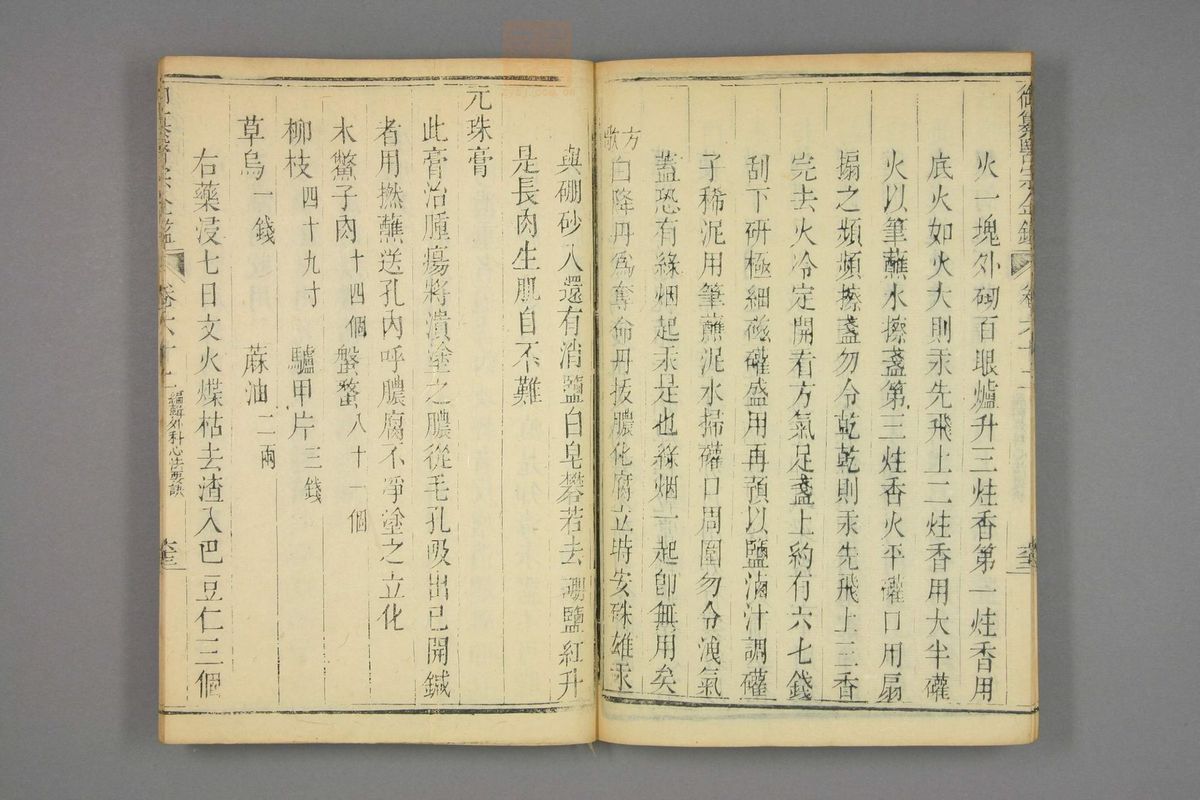 火一塊外砌百眼爐升三炷香第一炷香用
底火如火大則汞先飛上二炷香用大半礶
火以筆蘸水擦盞第三炷香火平礶口用扇
搧之頻頻擦盞勿令乾乾則汞先飛上三香
完去火冷定開看方氣足盞上約有六七錢
刮下研極細磁礶盛用再預以鹽滷汁調礶
子稀泥用筆蘸泥水掃礶口周圍勿令洩氣
蓋恐有綠烟起汞是也綠烟一起卽無用矣
方歌 白降丹爲奪命丹拔膿化腐立時安硃雄汞
與硼砂入還有消鹽白皂礬若去硼鹽紅升
是長肉生肌自不難
元珠膏
此膏治腫瘍將潰塗之膿從毛孔吸出已開鍼
者用撚蘸送孔內呼膿腐不凈塗之立化
木鱉子肉十四個 螌蝥八十一個
柳枝四十九寸 驢甲片三錢
草烏一錢 蔴油二兩
右藥浸七日文火煠枯去渣入巴豆仁三個
編輯外科心法要訣